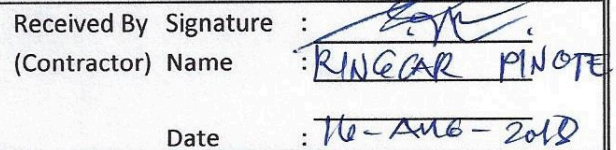 Received By Signature :
(Contractor) Name : RINGCAR PINOTE
Date : 16-AUG-2018